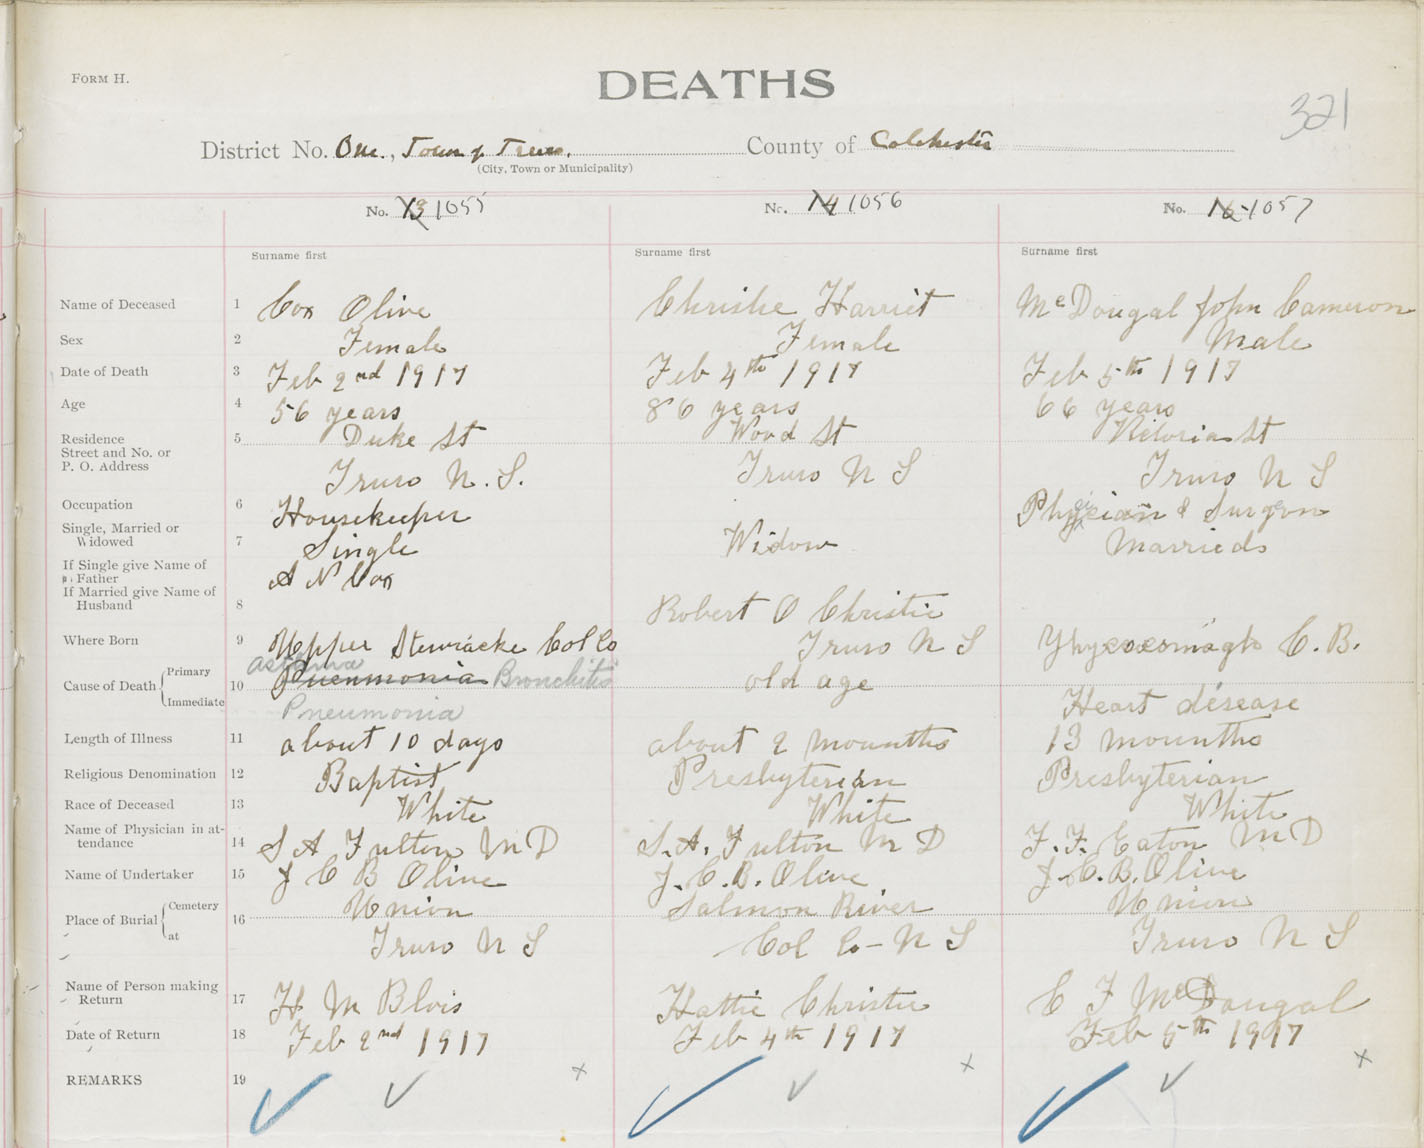 FORM H.
DEATHS
321
District No. One., Town of Truro. County of Colchester
(City, Town or Municipality)
No. 13 1055 No. 14 1056 No. 15 1057
Surname first Surname first Surname first
Name of Deceased 1 Cox Olive Christie Harriet McDougal John Cameron
Sex 2 Female Female Male
Date of Death 3 Feb 2nd 1917 Feb 4th 1917 Feb 5th 1917
Age 4 56 years 86 years 66 years
Residence 5 Duke St Wood St Victoria St
Street and No. or
P. O. Address Truro N.S. Truro N S Truro N S
Occupation 6 Housekeeper Physician & Surgeon
Single, Married or
Widowed 7 Single Widow Married
If Single give Name of
Father A N Cox
If Married give Name of
Husband 8 Robert O Christie
Where Born 9 Upper Stewiacke Col Co Truro N S Whycocomagh C. B.
asthma
Cause of Death Primary 10 Pneumonia Bronchitis old age
Immediate Pneumonia Heart disease
Length of Illness 11 about 10 days about 2 mounths 13 mounths
Religious Denomination 12 Baptist Presbyterian Presbyterian
Race of Deceased 13 White White White
Name of Physician in at-
tendance 14 S A Fulton M D S. A. Fulton M D F. F. Eaton M D
Name of Undertaker 15 J C B Olive J. C. B. Olive J. C. B. Olive
Place of Burial Cemetery 16 Union Salmon River Union
at Truro N S Col Co - N S Truro N S
Name of Person making
Return 17 H M Blois Hattie Christie C F McDougal
Date of Return 18 Feb 2nd 1917 Feb 4th 1917 Feb 5th 1917
REMARKS 19 x x x